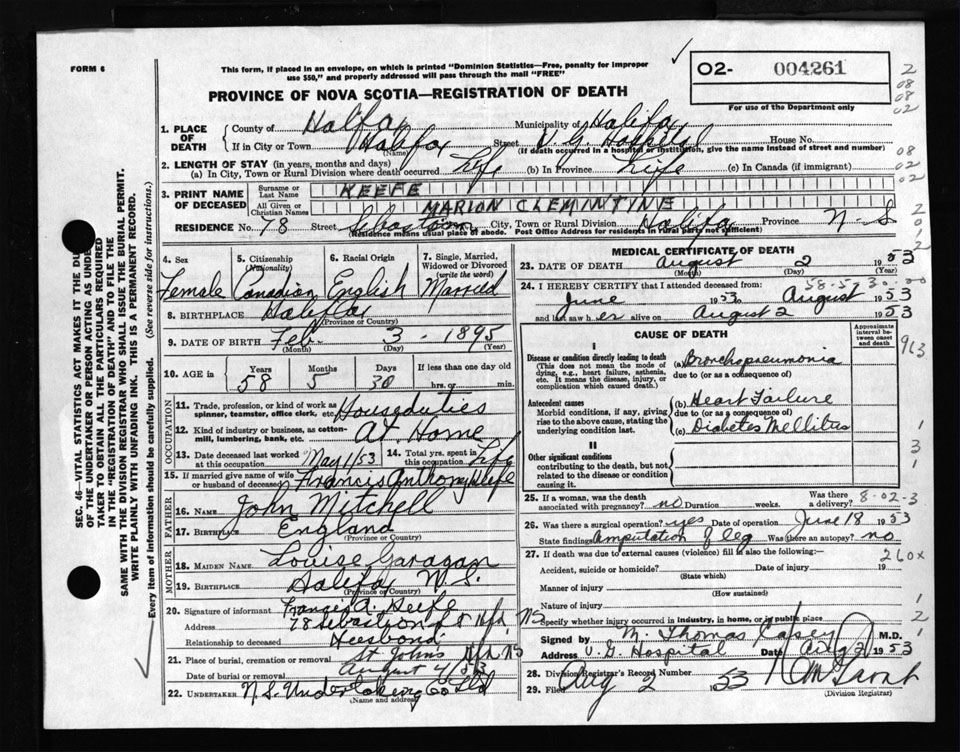 FORM 6
This form, if placed in an envelope, on which is printed "Dominion Statistics—Free, penalty for improper
use $50," and properly addressed will pass through the mail "FREE"
O2- 004261
For use of the Department only
PROVINCE OF NOVA SCOTIA—REGISTRATION OF DEATH
2
08
08
02
1. PLACE OF DEATH
County of Halifax Municipality of Halifax
If in City or Town Halifax Street V. G. Hospital House No.
(Name) (If death occurred in a hospital or institution, give the name instead of street and number)
2. LENGTH OF STAY (in years, months and days)
(a) In City, Town or Rural Division where death occurred Life (b) In Province Life (c) In Canada (if immigrant)
08
02
02
3. PRINT NAME OF DECEASED
Surname or Last Name KEEFE
All Given or Christian Names MARION CLEMINTINE
RESIDENCE No. 78 Street Sebastian City, Town or Rural Division Halifax Province N-S
(Residence means usual place of abode. Post Office Address for residents in rural parts not sufficient)
2
0
1
2
4. Sex Female
5. Citizenship (Nationality) Canadian
6. Racial Origin English
7. Single, Married, Widowed or Divorced (write the word) Married
8. BIRTHPLACE Halifax
(Province or Country)
9. DATE OF BIRTH Feb. 3 - 1895
(Month) (Day) (Year)
10. AGE in Years 58 Months 5 Days 30 If less than one day old hrs. or min.
OCCUPATION
11. Trade, profession, or kind of work as spinner, teamster, office clerk, etc. Houseduties
12. Kind of industry or business, as cotton-mill, lumbering, bank, etc. At Home
13. Date deceased last worked at this occupation May 1/53
14. Total yrs. spent in this occupation Life
15. If married give name of wife or husband of deceased Francis Anthony Keefe
FATHER
16. Name John Mitchell
17. Birthplace England
(Province or Country)
MOTHER
18. MAIDEN NAME Louise Garagan
19. BIRTHPLACE Halifax N.S.
(Province or Country)
20. Signature of informant Francis A. Keefe
Address 78 Sebastian St Hfx NS
Relationship to deceased Heesbond
21. Place of burial, cremation or removal St Johns Hfx NS
Date of burial or removal August 4/53
22. UNDERTAKER N.S. Undertaking Co Ltd
(Name and address)
MEDICAL CERTIFICATE OF DEATH
23. DATE OF DEATH August 2 1953
(Month) (Day) (Year)
58-5-30-00
24. I HEREBY CERTIFY that I attended deceased from:
June 1953 to August 1953
and last saw her alive on August 2 1953
CAUSE OF DEATH
Approximate interval between onset and death
I
Disease or condition directly leading to death
(This does not mean the mode of dying, e.g., heart failure, asthenia, etc. It means the disease, injury, or complication which caused death.)
(a) Bronchopneumonia
due to (or as a consequence of)
Antecedent causes
Morbid conditions, if any, giving rise to the above cause, stating the underlying condition last.
(b) Heart Failure
due to (or as a consequence of)
(c) Diabetes Mellitus
II
Other significant conditions
contributing to the death, but not related to the disease or condition causing it.
1
3
1
25. If a woman, was the death associated with pregnancy? no Duration weeks. Was there a delivery?
8-02-3
26. Was there a surgical operation? yes Date of operation June 18 1953
State findings Amputation of leg Was there an autopsy? no
27. If death was due to external causes (violence) fill in also the following:—
260x
Accident, suicide or homicide? Date of injury 19
(State which)
Manner of injury
(How sustained)
Nature of injury
Specify whether injury occurred in industry, in home, or in public place
1
2
Signed by M. Thomas Casey M.D.
1
Address V. G. Hospital Date Aug 2 1953
28. Division Registrar's Record Number
29. Filed Aug 2 1953
(Division Registrar)
SEC. 46—VITAL STATISTICS ACT MAKES IT THE DUTY
OF THE UNDERTAKER OR PERSON ACTING AS UNDERTAKER
TO OBTAIN ALL THE PARTICULARS REQUIRED
IN THE "REGISTRATION OF DEATH" AND TO FILE THE
SAME WITH THE DIVISION REGISTRAR WHO SHALL ISSUE THE BURIAL PERMIT.
WRITE PLAINLY WITH UNFADING INK. THIS IS A PERMANENT RECORD.
Every item of information should be carefully supplied. (See reverse side for instructions.)